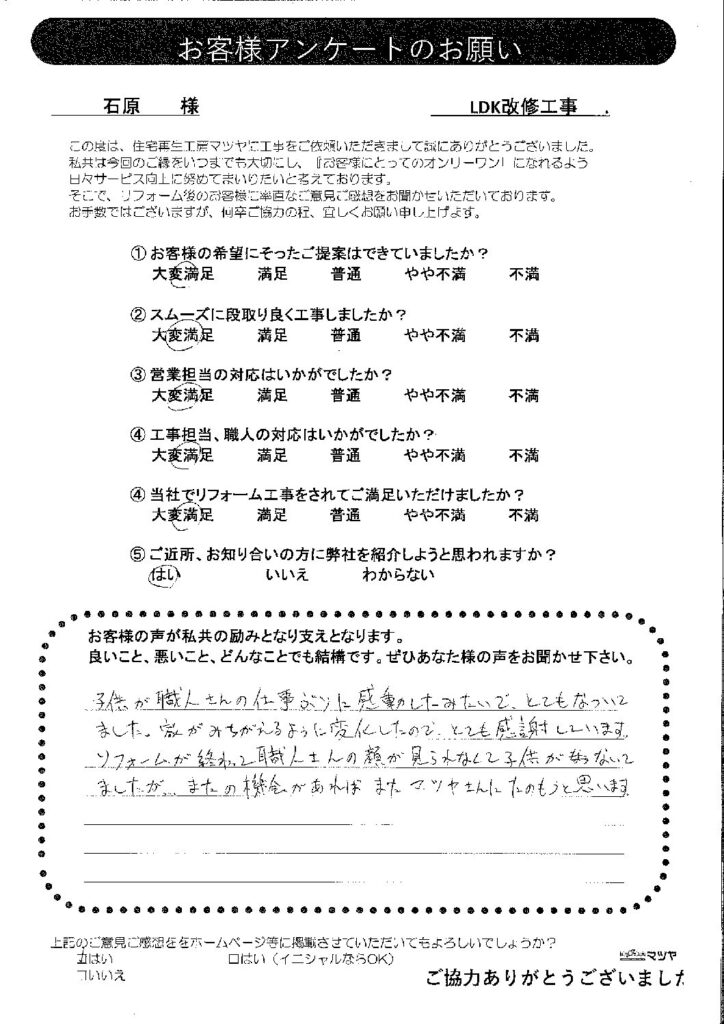 お客様アンケートのお願い
石原　様
LDK改修工事　.
この度は、住宅再生工房マツヤに工事をご依頼いただきまして誠にありがとうございました。
私共は今回のご縁をいつまでも大切にし、『お客様にとってのオンリーワン』になれるよう
日々サービス向上に努めてまいりたいと考えております。
そこで、リフォーム後のお客様に率直なご意見ご感想をお聞かせいただいております。
お手数ではございますが、何卒ご協力の程、宜しくお願い申し上げます。
① お客様の希望にそったご提案はできていましたか？
大変満足　満足　普通　やや不満　不満
② スムーズに段取り良く工事しましたか？
大変満足　満足　普通　やや不満　不満
③ 営業担当の対応はいかがでしたか？
大変満足　満足　普通　やや不満　不満
④ 工事担当、職人の対応はいかがでしたか？
大変満足　満足　普通　やや不満　不満
④ 当社でリフォーム工事をされてご満足いただけましたか？
大変満足　満足　普通　やや不満　不満
⑤ ご近所、お知り合いの方に弊社を紹介しようと思われますか？
はい　いいえ　わからない
お客様の声が私共の励みとなり支えとなります。
良いこと、悪いこと、どんなことでも結構です。ぜひあなた様の声をお聞かせ下さい。
子供が職人さんの仕事ぶりに感動したみたいで、とてもなついて
ました。家がみちがえるように変化したので、とても感謝しています
リフォームが終わって職人さんの顔が見られなくて子供が
ましたが、またの機会があれば またマツヤさんにたのもうと思います
上記のご意見ご感想ををホームページ等に掲載させていただいてもよろしいでしょうか？
はい　□はい（イニシャルならOK）
いいえ
マツヤ
ご協力ありがとうございました